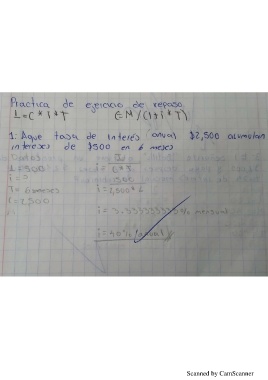 Práctica de ejercicio de repaso
I=C*i*T C=M/(1+i*T)
1. Aque tasa de interés anual $2,500 acumulan
intereses de $500 en 6 meses
Datos
I=500
i=?
T= 6 meses i=2,500*6
C=2,500
i= 3.3333333333% mensual
i=40% anual
Scanned by CamScanner